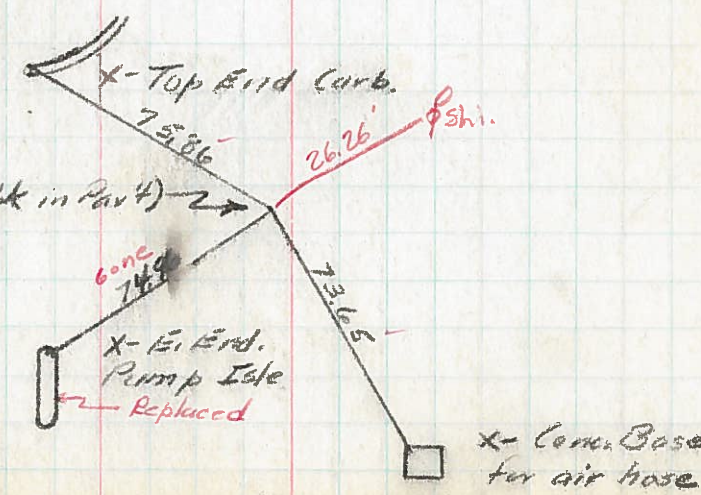 X- Top End Carb.
75.86
26.26'
shi.
in Pav't)
Gone
74.9
73.65
X- E. End.
Pump Isle
Replaced
X- Conc. Base
for air hose